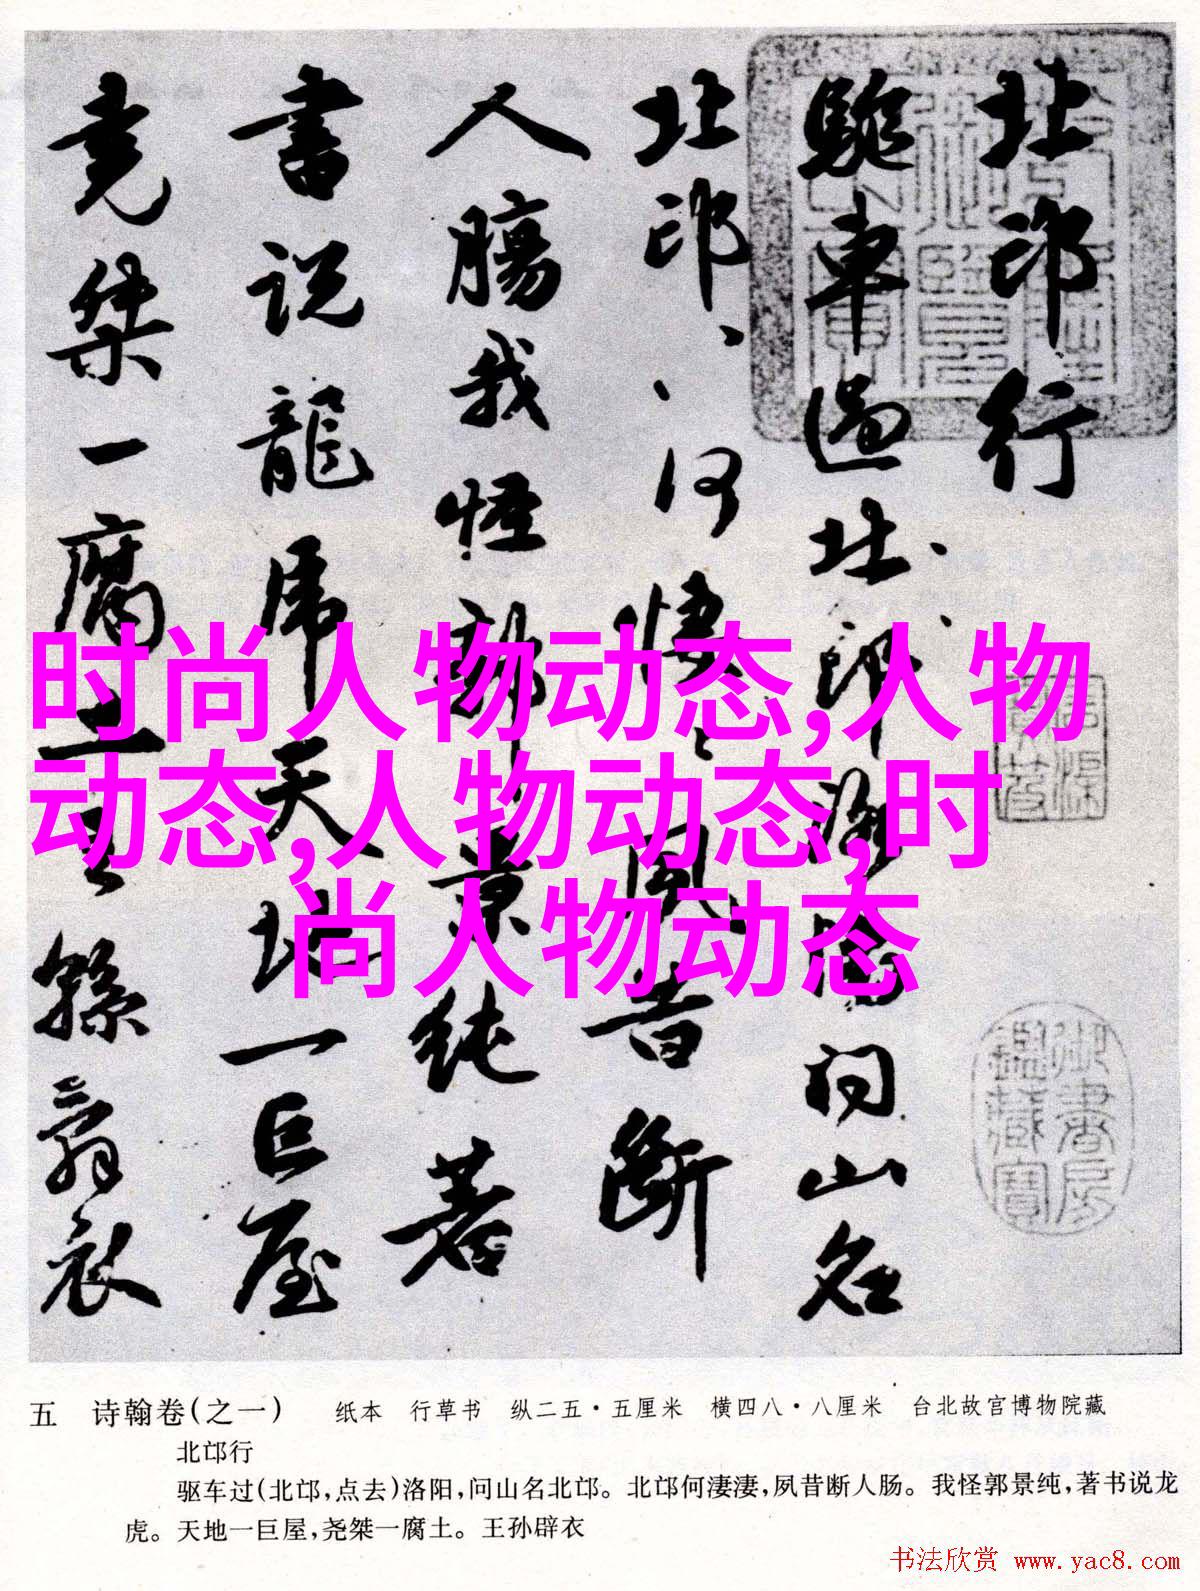 北邙行
駈車過北邙、洛陽问山名
北邙、何悽〻夙昔斷
人腸我怪郭景純著
書说龍虎天地一巨屋
堯桀一腐土王孫辟衣
时尚人物动态,人物
动态,人物动态,时
尚人物动态
五 诗翰卷(之一) 纸本 行草书 纵二五·五厘米 横四八·八厘米 台北故宫博物院藏
北邙行
驱车过(北邙,点去)洛阳,问山名北邙。北邙何淒淒,夙昔断人肠。我怪郭景纯,著书说龙
虎。天地一巨屋,尧桀一腐土。王孙辟衣
书法欣赏 www.yac8.com